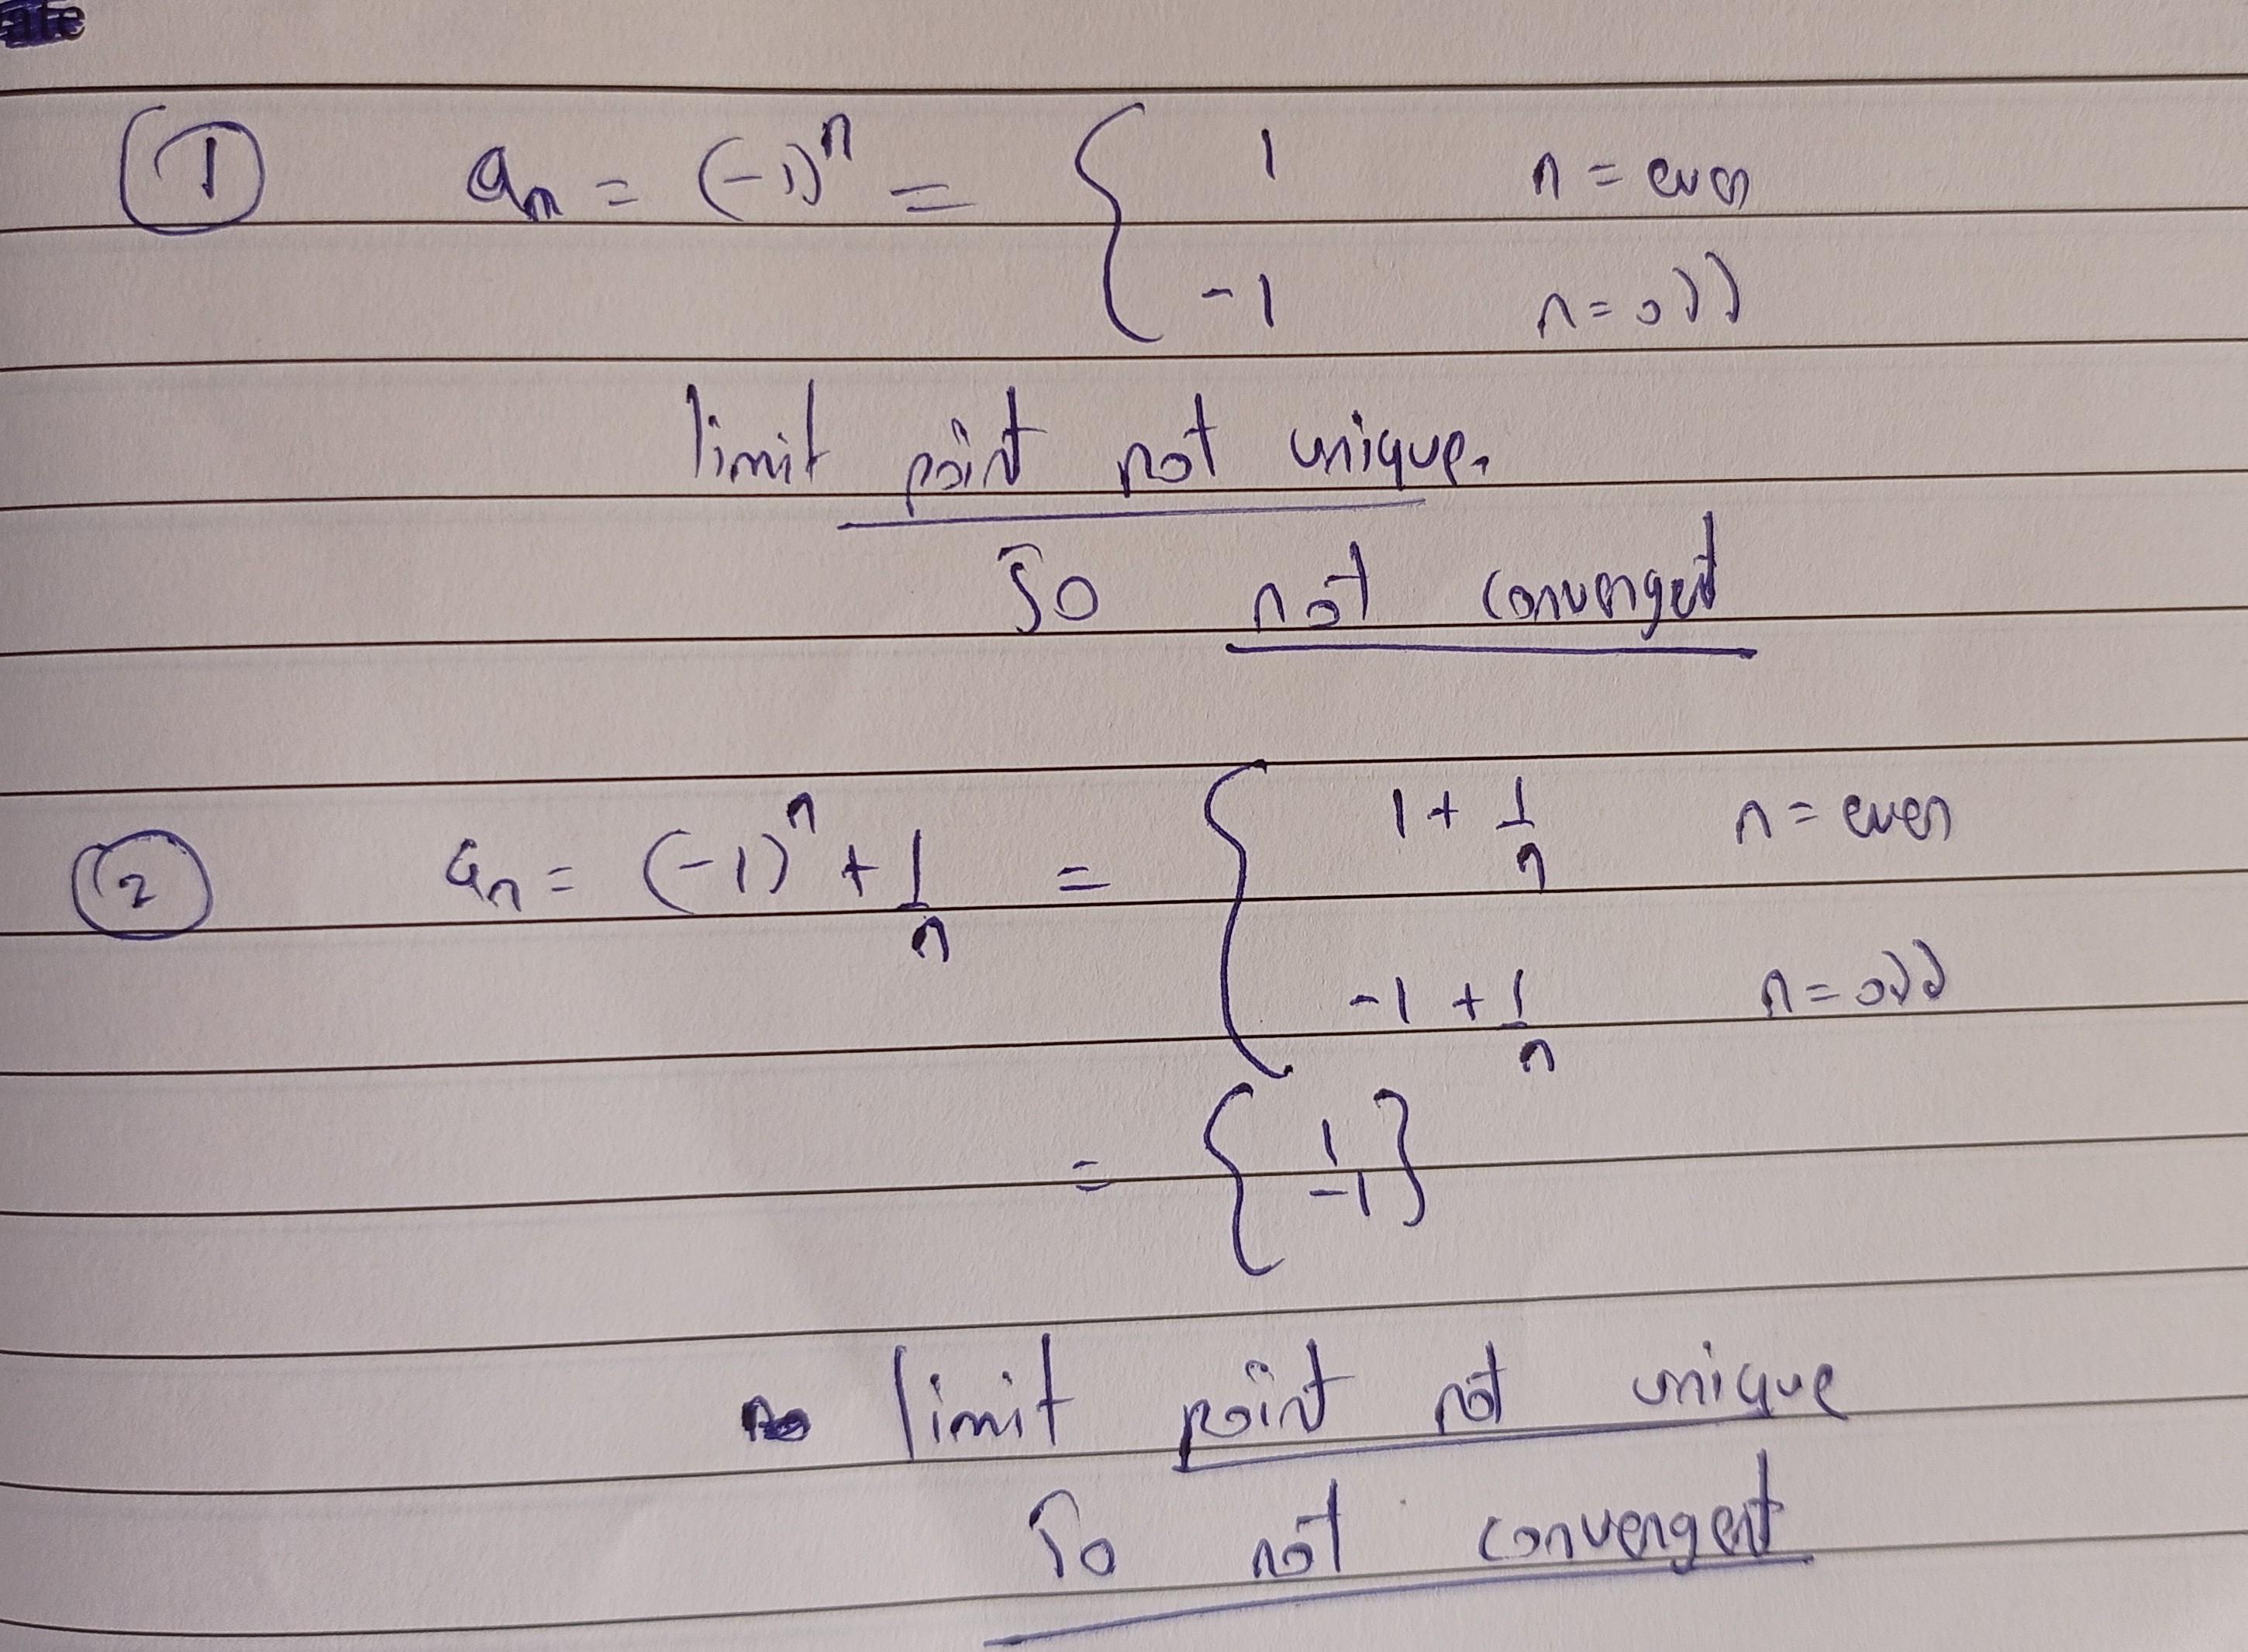 ate
① aₙ = (-1)ⁿ = { 1 n = even
-1 n = odd
limit point not unique.
So not convergent
② aₙ = (-1)ⁿ + 1/n = { 1 + 1/n n = even
-1 + 1/n n = odd
= { 1
-1 }
limit point not unique
So not convergent